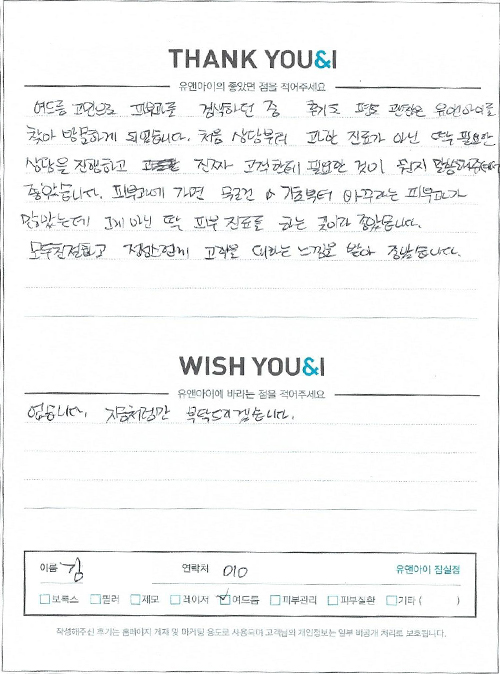 THANK YOU&I
유앤아이의 좋았던 점을 적어주세요
여드름 고민으로 피부과를 검색하던 중 후기도 평도 괜찮은 유앤아이를
찾아 방문하게 되었습니다. 처음 상담부터 과한 진료가 아닌 딱 필요한
상담을 진행하고 진짜 고객한테 필요한 것이 뭔지 말씀해주셔서
좋았습니다. 피부과에 가면 무조건 기초부터 바꾸라는 피부과가
많았는데 그게 아닌 딱 피부 진료를 하는 곳이라 좋았습니다.
모두 친절하고 정성스럽게 고객을 대하는 느낌을 받아 좋았습니다.
WISH YOU&I
유앤아이에 바라는 점을 적어주세요
없습니다. 지금처럼만 부탁드리겠습니다.
이름 김 연락처 010 유앤아이 잠실점
보톡스 필러 제모 레이저 여드름 피부관리 피부질환 기타 ( )
작성해주신 후기는 홈페이지 게재 및 마케팅 용도로 사용되며 고객님의 개인정보는 일부 비공개 처리로 보호됩니다.